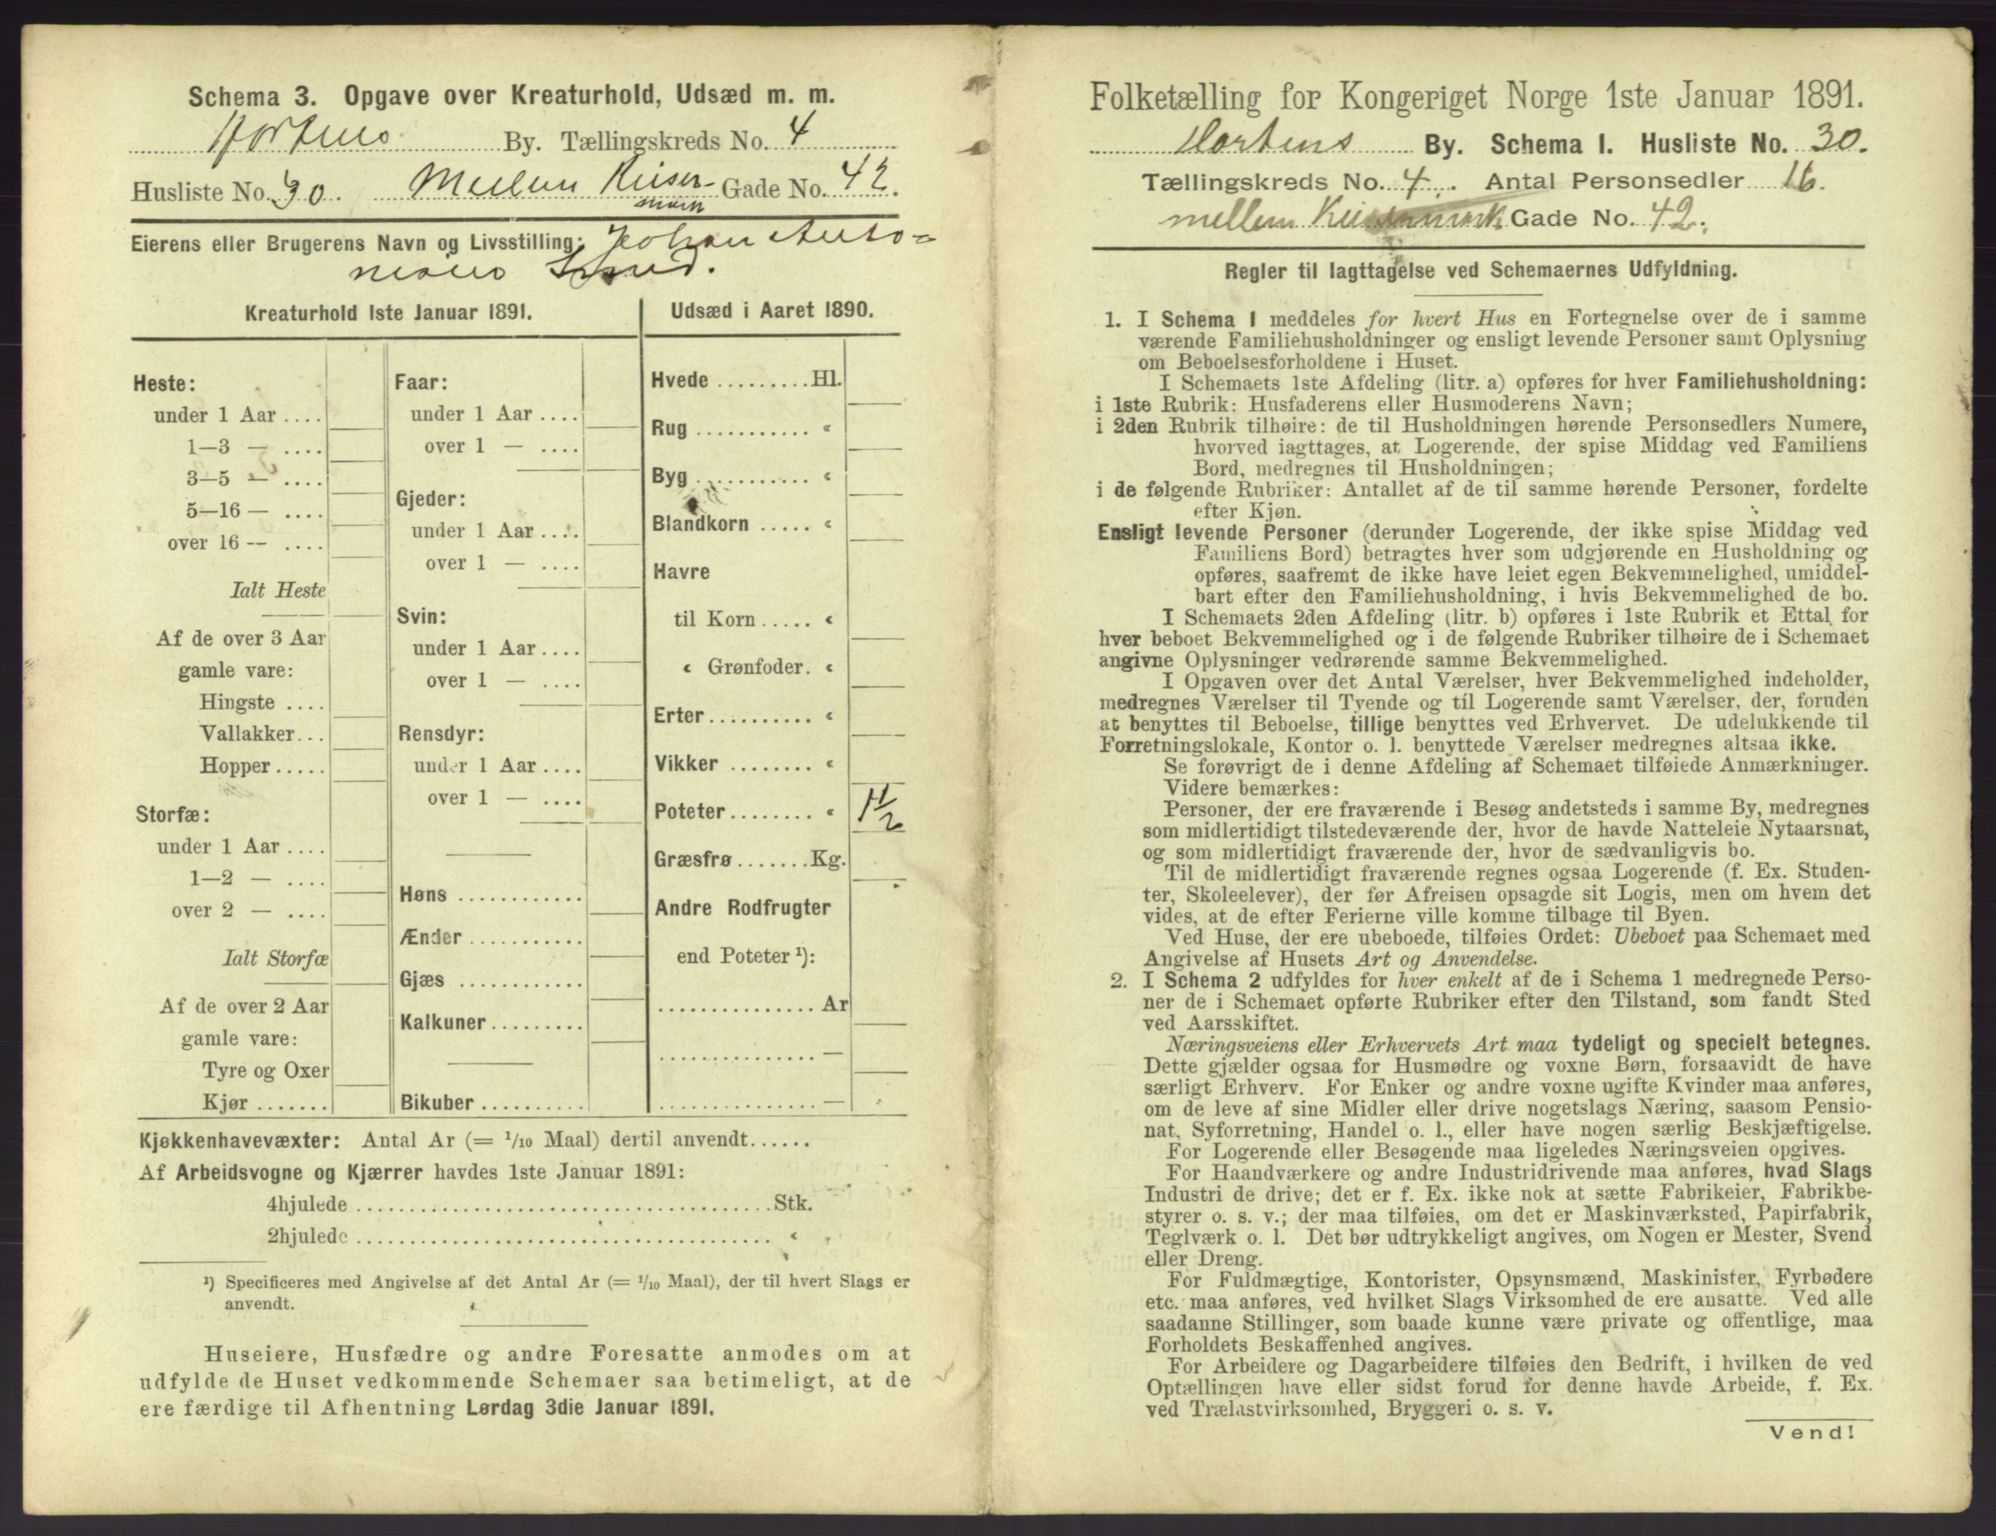 Schema 3. Opgave over Kreaturhold, Udsæd m. m.
Hortens By. Tællingskreds No. 4
Husliste No. 30. Mellem Keiser- Gade No. 42.
mark
Eierens eller Brugerens Navn og Livsstilling: Johan Anto=
nius
Kreaturhold 1ste Januar 1891.
Heste:
under 1 Aar ....
1—3 — ....
3—5 — ....
5—16 — ....
over 16 — ....
Ialt Heste
Af de over 3 Aar
gamle vare:
Hingste ....
Vallakker...
Hopper.....
Storfæ:
under 1 Aar ....
1—2 — ....
over 2 — ....
Ialt Storfæ
Af de over 2 Aar
gamle vare:
Tyre og Oxer
Kjør .......
Faar:
under 1 Aar ....
over 1 — ....
Gjeder:
under 1 Aar ....
over 1 — ....
Svin:
under 1 Aar ....
over 1 — ....
Rensdyr:
under 1 Aar ....
over 1 — ....
Høns ............
Ænder ...........
Gjæs ............
Kalkuner.........
Bikuber ..........
Udsæd i Aaret 1890.
Hvede .........Hl.
Rug ........... «
Byg ........... «
Blandkorn ..... «
Havre
til Korn ..... «
« Grønfoder. «
Erter.......... «
Vikker ........ «
Poteter........ « 1 1/2
Græsfrø .......Kg.
Andre Rodfrugter
end Poteter ¹):
............... Ar
............... —
............... —
Kjøkkenhavevæxter: Antal Ar (= 1/10 Maal) dertil anvendt......
Af Arbeidsvogne og Kjærrer havdes 1ste Januar 1891:
4hjulede ........................................Stk.
2hjulede ........................................ «
¹) Specificeres med Angivelse af det Antal Ar (= 1/10 Maal), der til hvert Slags er
anvendt.
Huseiere, Husfædre og andre Foresatte anmodes om at
udfylde de Huset vedkommende Schemaer saa betimeligt, at de
ere færdige til Afhentning Lørdag 3die Januar 1891.
Folketælling for Kongeriget Norge 1ste Januar 1891.
Hortens By. Schema I. Husliste No. 30.
Tællingskreds No. 4. Antal Personsedler 16.
mellem Keisermark Gade No. 42.
Regler til Iagttagelse ved Schemaernes Udfyldning.
1. I Schema I meddeles for hvert Hus en Fortegnelse over de i samme
værende Familiehusholdninger og ensligt levende Personer samt Oplysning
om Beboelsesforholdene i Huset.
I Schemaets 1ste Afdeling (litr. a) opføres for hver Familiehusholdning:
i 1ste Rubrik: Husfaderens eller Husmoderens Navn;
i 2den Rubrik tilhøire: de til Husholdningen hørende Personsedlers Numere,
hvorved iagttages, at Logerende, der spise Middag ved Familiens
Bord, medregnes til Husholdningen;
i de følgende Rubriker: Antallet af de til samme hørende Personer, fordelte
efter Kjøn.
Ensligt levende Personer (derunder Logerende, der ikke spise Middag ved
Familiens Bord) betragtes hver som udgjørende en Husholdning og
opføres, saafremt de ikke have leiet egen Bekvemmelighed, umiddel-
bart efter den Familiehusholdning, i hvis Bekvemmelighed de bo.
I Schemaets 2den Afdeling (litr. b) opføres i 1ste Rubrik et Ettal for
hver beboet Bekvemmelighed og i de følgende Rubriker tilhøire de i Schemaet
angivne Oplysninger vedrørende samme Bekvemmelighed.
I Opgaven over det Antal Værelser, hver Bekvemmelighed indeholder,
medregnes Værelser til Tyende og til Logerende samt Værelser, der, foruden
at benyttes til Beboelse, tillige benyttes ved Erhvervet. De udelukkende til
Forretningslokale, Kontor o. l. benyttede Værelser medregnes altsaa ikke.
Se forøvrigt de i denne Afdeling af Schemaet tilføiede Anmærkninger.
Videre bemærkes:
Personer, der ere fraværende i Besøg andetsteds i samme By, medregnes
som midlertidigt tilstedeværende der, hvor de havde Natteleie Nytaarsnat,
og som midlertidigt fraværende der, hvor de sædvanligvis bo.
Til de midlertidigt fraværende regnes ogsaa Logerende (f. Ex. Studen-
ter, Skoleelever), der før Afreisen opsagde sit Logis, men om hvem det
vides, at de efter Ferierne ville komme tilbage til Byen.
Ved Huse, der ere ubeboede, tilføies Ordet: Ubeboet paa Schemaet med
Angivelse af Husets Art og Anvendelse.
2. I Schema 2 udfyldes for hver enkelt af de i Schema 1 medregnede Perso-
ner de i Schemaet opførte Rubriker efter den Tilstand, som fandt Sted
ved Aarsskiftet.
Næringsveiens eller Erhvervets Art maa tydeligt og specielt betegnes.
Dette gjælder ogsaa for Husmødre og voxne Børn, forsaavidt de have
særligt Erhverv. For Enker og andre voxne ugifte Kvinder maa anføres,
om de leve af sine Midler eller drive nogetslags Næring, saasom Pensio-
nat, Syforretning, Handel o. l., eller have nogen særlig Beskjæftigelse.
For Logerende eller Besøgende maa ligeledes Næringsveien opgives.
For Haandværkere og andre Industridrivende maa anføres, hvad Slags
Industri de drive; det er f. Ex. ikke nok at sætte Fabrikeier, Fabrikbe-
styrer o. s. v.; der maa tilføies, om det er Maskinværksted, Papirfabrik,
Teglværk o. l. Det bør udtrykkeligt angives, om Nogen er Mester, Svend
eller Dreng.
For Fuldmægtige, Kontorister, Opsynsmænd, Maskinister, Fyrbødere
etc. maa anføres, ved hvilket Slags Virksomhed de ere ansatte. Ved alle
saadanne Stillinger, som baade kunne være private og offentlige, maa
Forholdets Beskaffenhed angives.
For Arbeidere og Dagarbeidere tilføies den Bedrift, i hvilken de ved
Optællingen have eller sidst forud for denne havde Arbeide, f. Ex.
ved Trælastvirksomhed, Bryggeri o. s. v.
Vend!